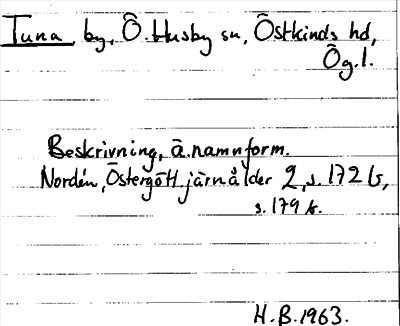 Tuna by, Ö. Husby sn, Östkinds hd,
Ög.l.
Beskrivning, ä. namnform.
Nordén, Östergötl. järnålder 2, s. 172 f.,
s. 179 f.
H.B. 1963.